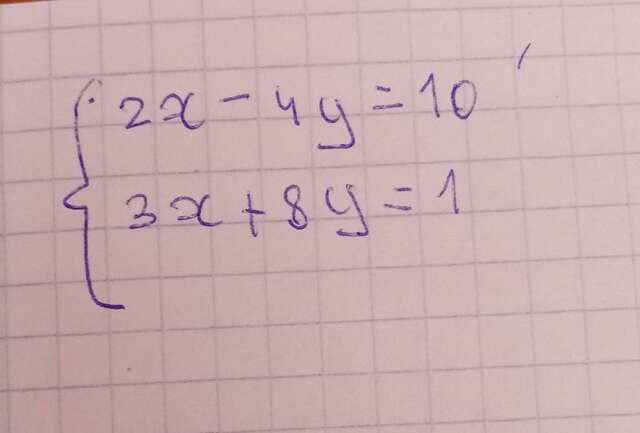 2x - 4y = 10
3x + 8y = 1